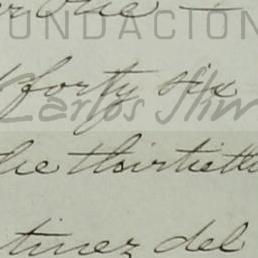 FUNDACIÓN
forty six
Carlos Slim
the thirtieth
tinez del